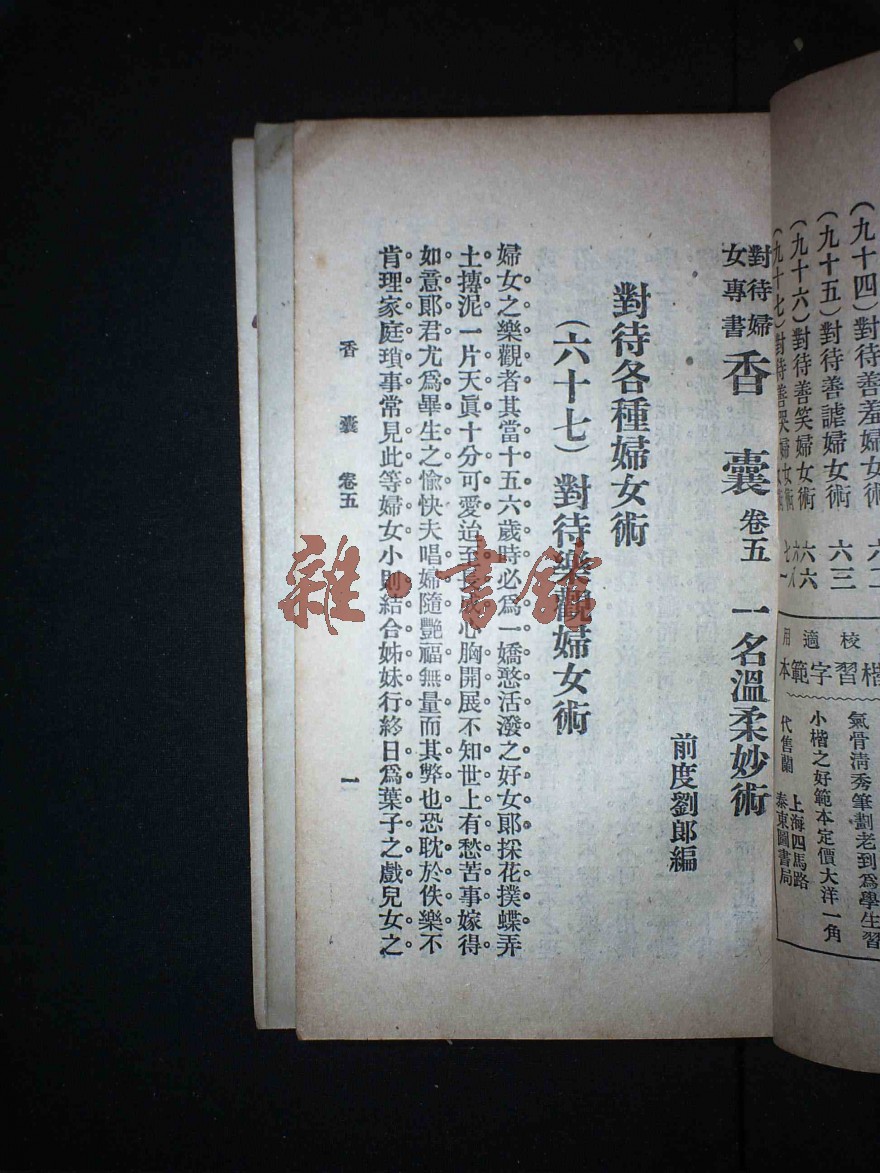 (九十四)對待善羞婦女術
(九十五)對待善謔婦女術 六三
(九十六)對待善笑婦女術 六六
(九十七)對待善哭婦女術
校適用
楷習字範本
氣骨清秀筆劃老到為學生習
小楷之好範本定價大洋一角
代售蘭 上海四馬路
泰東圖書局
對待婦女專書 香囊 卷五 一名溫柔妙術
前度劉郎編
對待各種婦女術
(六十七)對待樂觀婦女術
婦女之樂觀者其當十五六歲時必為一嬌憨活潑之好女郎採花撲蝶弄
土摶泥一片天眞十分可愛迨至長成心胸開展不知世上有愁苦事嫁得
如意郞君尤爲畢生之愉快夫唱婦隨艷福無量而其弊也恐耽於佚樂不
肯理家庭瑣事常見此等婦女小則結合姊妹行終日爲葉子之戲兒女之
香囊 卷五
一
雜·書館